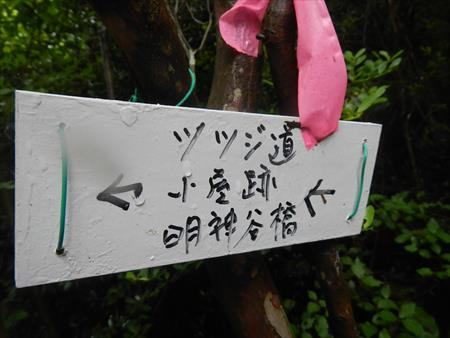 ツツジ道
← 小屋跡 ←
明神谷橋